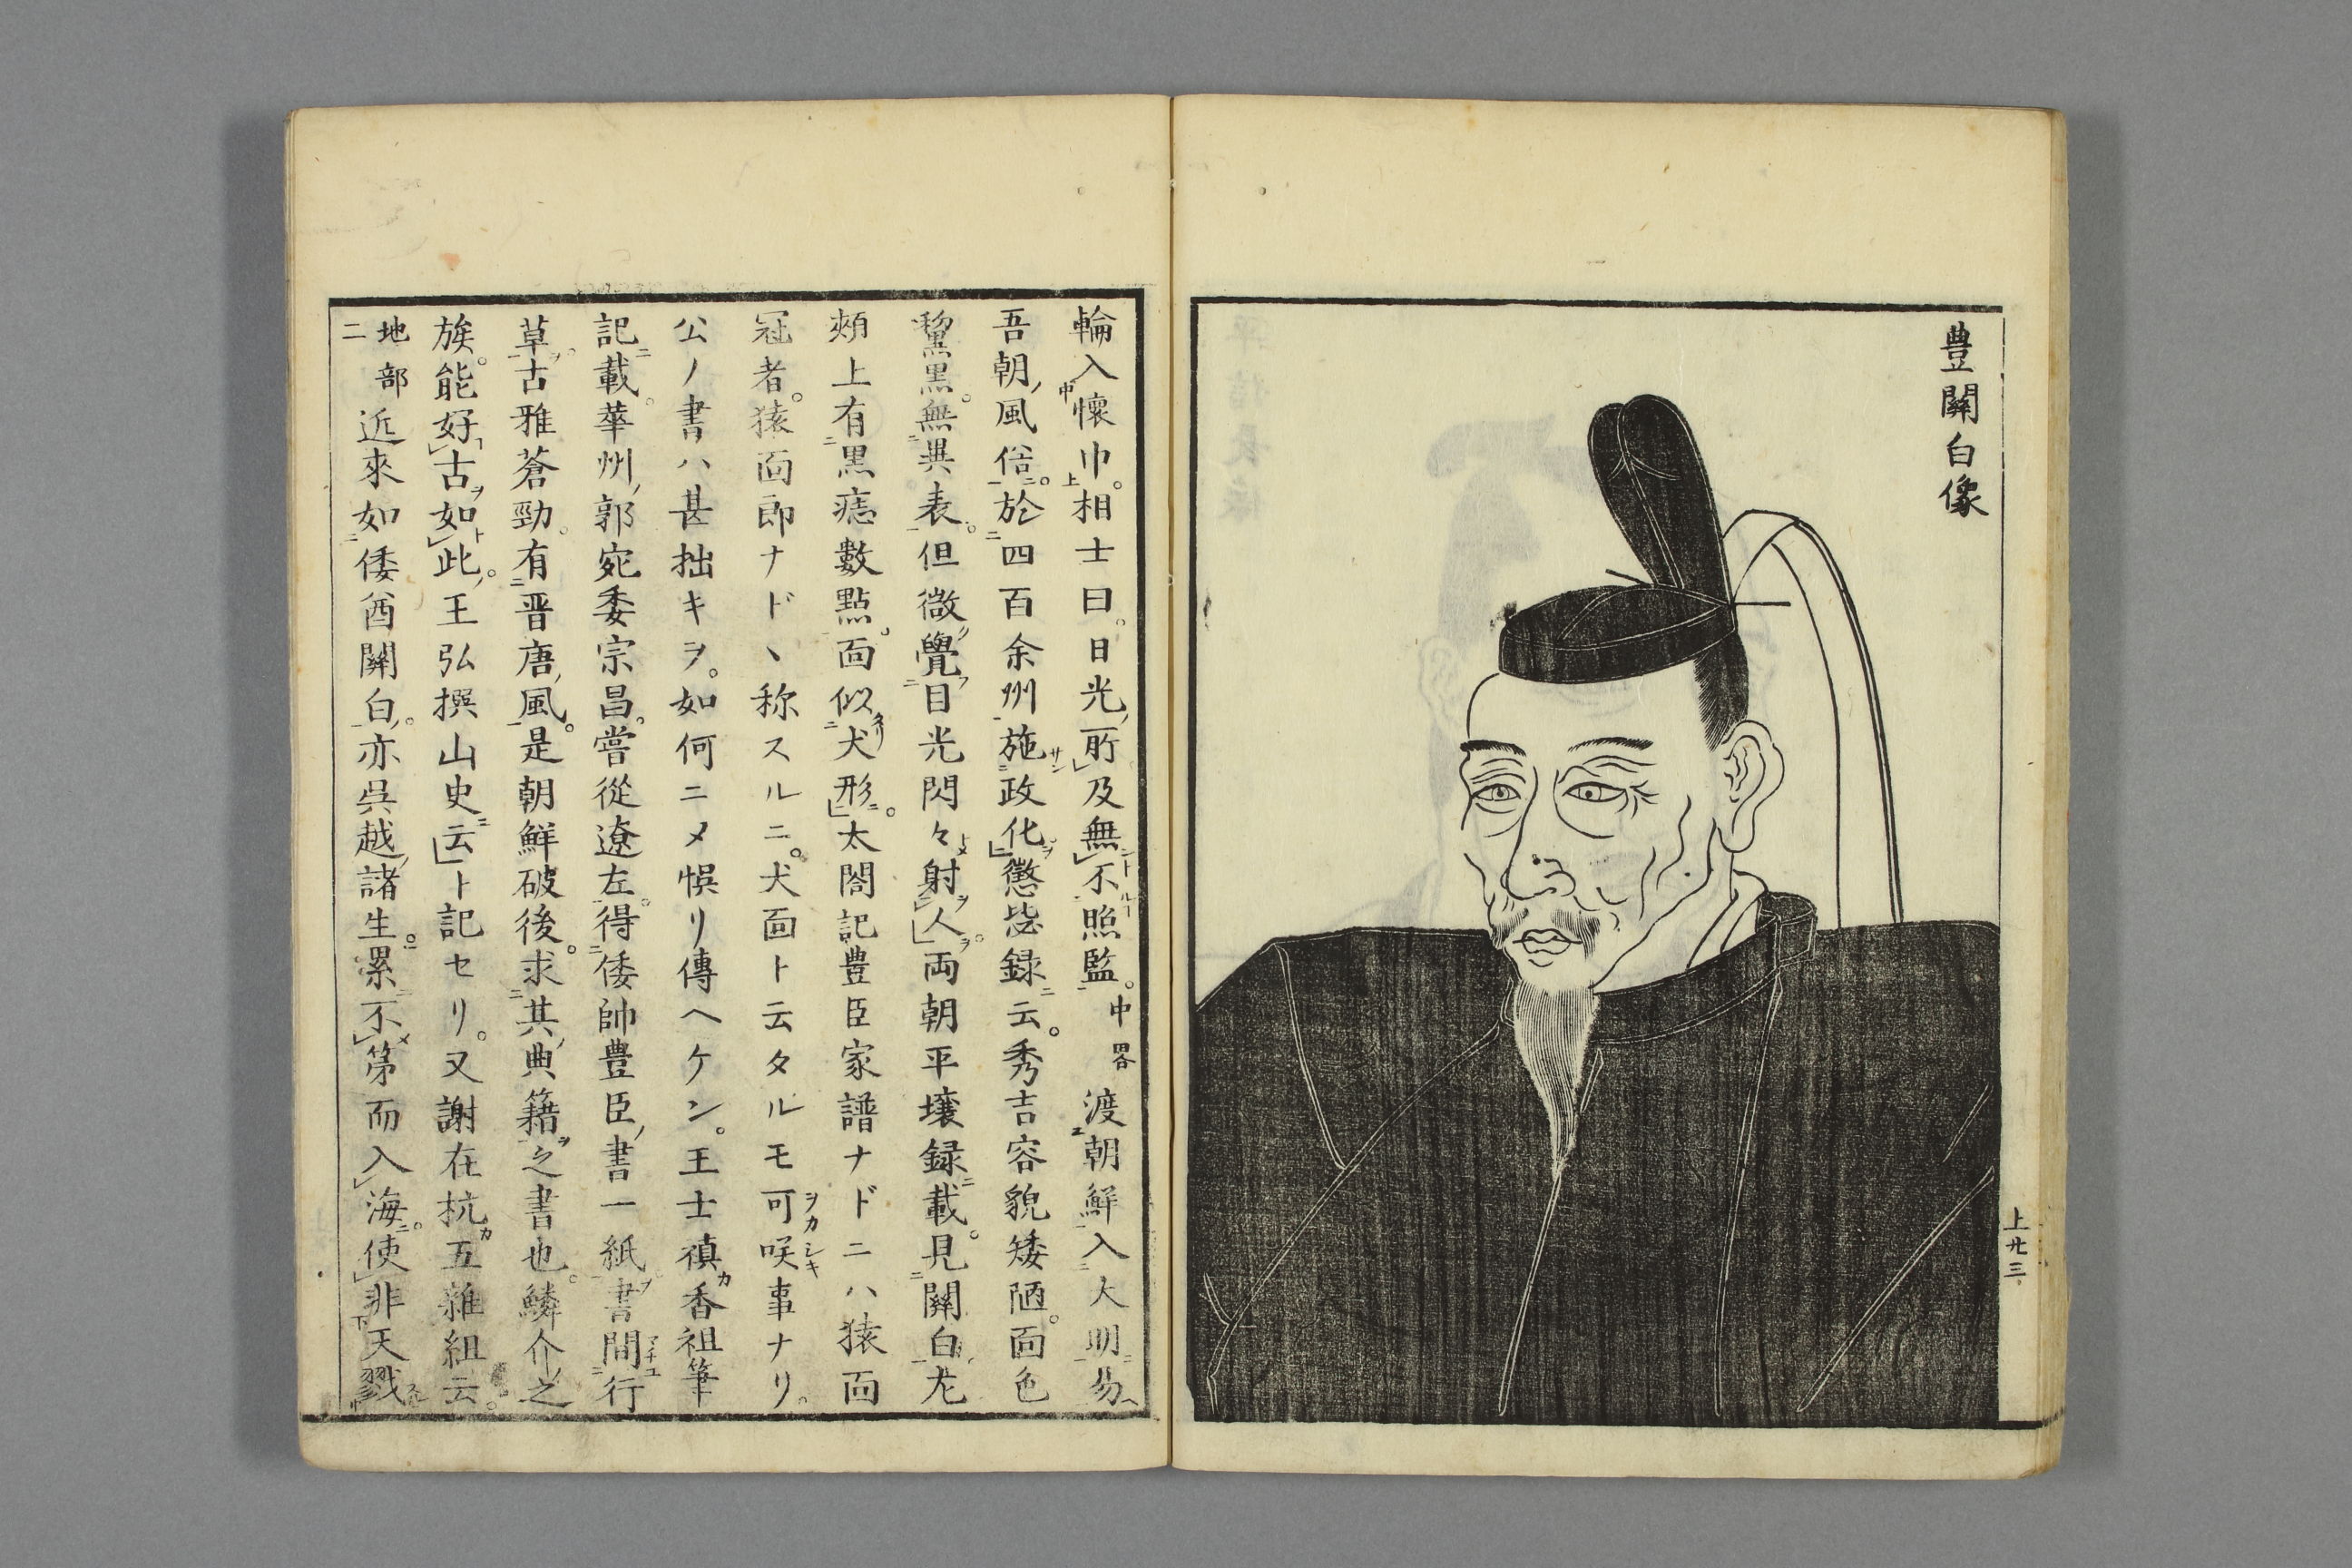 豊關白像
上廿三
輪入懐中。相士曰。日光所及無不照監。中畧渡朝鮮入大明易
吾朝風俗。於四百余州施政化懲毖録云。秀吉容貌矮陋。面色
黧黒。無異表。但微覺目光閃々射人両朝平壌録載。見關白尤
頰上有黒痣數點。面似犬形。太閤記豊臣家譜ナドニハ猿面
冠者。猿面郎ナドヽ称スルニ。犬面ト云タルモ可咲事ナリ。
公ノ書ハ甚拙キヲ。如何ニメ悞リ傳ヘケン。王士禛香祖筆
記載。華州郭宛委宗昌。嘗從遼左。得倭帥豊臣書一紙書間行
草。古雅蒼勁。有晋唐風。是朝鮮破後。求其典籍之書也。鱗介之
族。能好古如此。王弘撰山史云ト記セリ。又謝在杭五雑組云。
地部二近來如倭酋關白。亦呉越諸生。累不第而入海。使非天戮